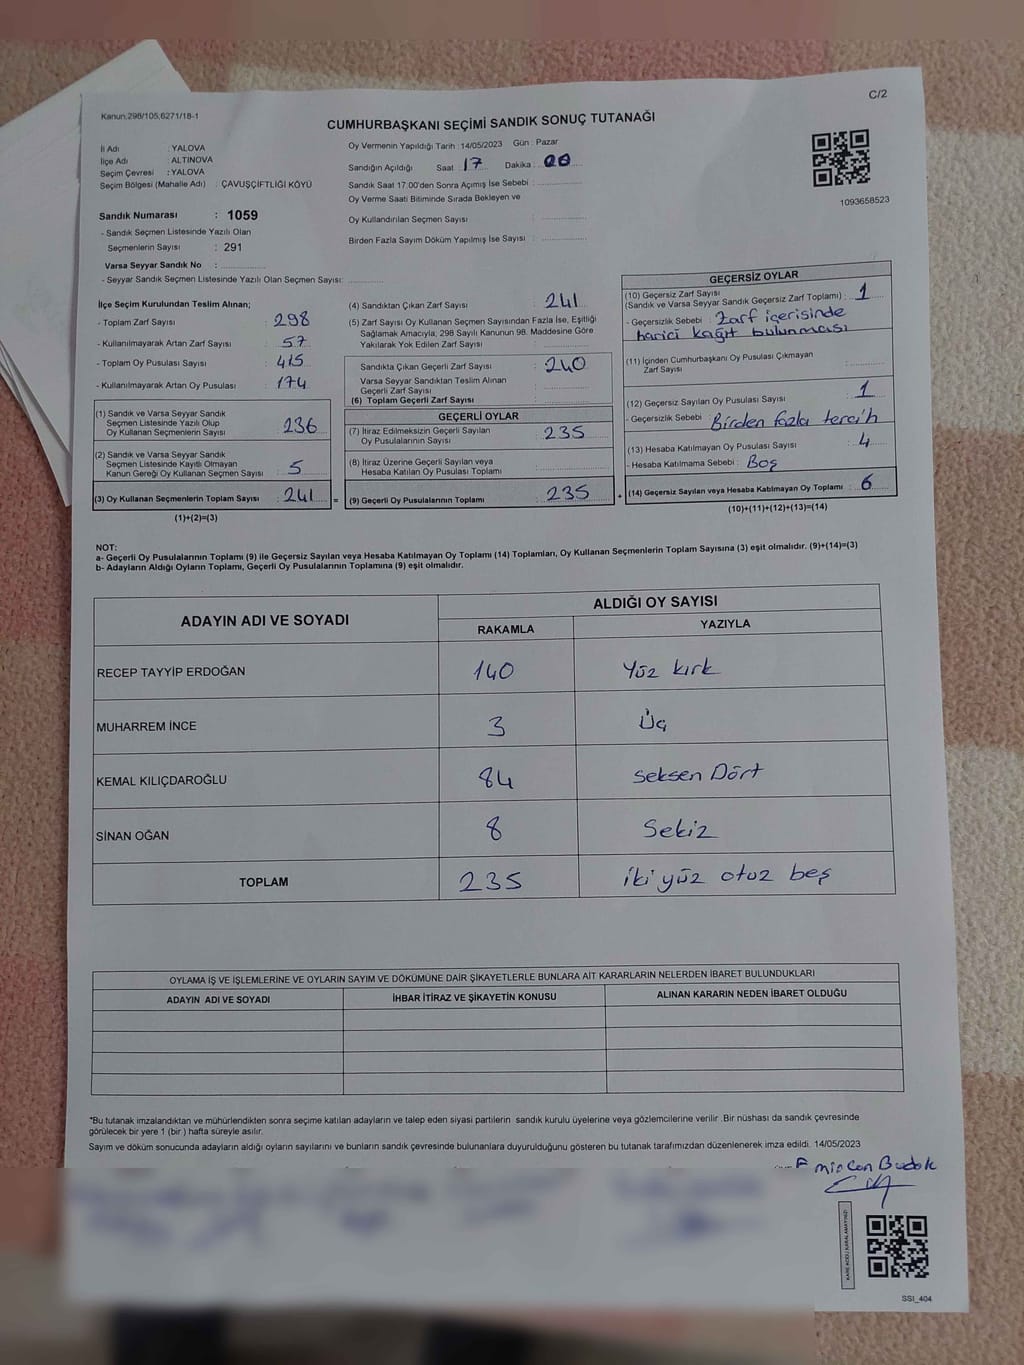 C/2
Kanun,298/105,6271/18-1
CUMHURBAŞKANI SEÇİMİ SANDIK SONUÇ TUTANAĞI
İl Adı : YALOVA
İlçe Adı : ALTINOVA
Seçim Çevresi : YALOVA
Seçim Bölgesi (Mahalle Adı) : ÇAVUŞÇİFTLİĞİ KÖYÜ
Sandık Numarası : 1059
- Sandık Seçmen Listesinde Yazılı Olan
Seçmenlerin Sayısı : 291
Varsa Seyyar Sandık No :
- Seyyar Sandık Seçmen Listesinde Yazılı Olan Seçmen Sayısı:
Oy Vermenin Yapıldığı Tarih : 14/05/2023 Gün : Pazar
Sandığın Açıldığı Saat : 17 Dakika : 00
Sandık Saat 17.00'den Sonra Açımış İse Sebebi :
Oy Verme Saati Bitiminde Sırada Bekleyen ve
Oy Kullandırılan Seçmen Sayısı :
Birden Fazla Sayım Döküm Yapılmış İse Sayısı :
1093658523
İlçe Seçim Kurulundan Teslim Alınan;
- Toplam Zarf Sayısı : 298
- Kullanılmayarak Artan Zarf Sayısı : 57
- Toplam Oy Pusulası : 415
- Kullanılmayarak Artan Oy Pusulası : 174
(1) Sandık ve Varsa Seyyar Sandık
Seçmen Listesinde Yazılı Olup
Oy Kullanan Seçmenlerin Sayısı : 236
(2) Sandık ve Varsa Seyyar Sandık
Seçmen Listesinde Kayıtlı Olmayan
Kanun Gereği Oy Kullanan Seçmen Sayısı : 5
(3) Oy Kullanan Seçmenlerin Toplam Sayısı : 241 =
(1)+(2)=(3)
(4) Sandıktan Çıkan Zarf Sayısı : 241
(5) Zarf Sayısı Oy Kullanan Seçmen Sayısından Fazla İse, Eşitliği
Sağlamak Amacıyla, 298 Sayılı Kanunun 98. Maddesine Göre
Yakılarak Yok Edilen Zarf Sayısı :
Sandıkta Çıkan Geçerli Zarf Sayısı : 240
Varsa Seyyar Sandıktan Teslim Alınan
Geçerli Zarf Sayısı :
(6) Toplam Geçerli Zarf Sayısı :
GEÇERLİ OYLAR
(7) İtiraz Edilmeksizin Geçerli Sayılan
Oy Pusulalarının Sayısı : 235
(8) İtiraz Üzerine Geçerli Sayılan veya
Hesaba Katılan Oy Pusulası Toplamı :
(9) Geçerli Oy Pusulalarının Toplamı : 235 +
GEÇERSİZ OYLAR
(10) Geçersiz Zarf Sayısı
(Sandık ve Varsa Seyyar Sandık Geçersiz Zarf Toplamı) : 1
- Geçersizlik Sebebi : Zarf içerisinde
harici kağıt bulunması
(11) İçinden Cumhurbaşkanı Oy Pusulası Çıkmayan
Zarf Sayısı :
(12) Geçersiz Sayılan Oy Pusulası Sayısı : 1
- Geçersizlik Sebebi : Birden fazla tercih
(13) Hesaba Katılmayan Oy Pusulası Sayısı : 4
- Hesaba Katılmama Sebebi : Boş
(14) Geçersiz Sayılan veya Hesaba Katılmayan Oy Toplamı : 6
(10)+(11)+(12)+(13)=(14)
NOT:
a- Geçerli Oy Pusulalarının Toplamı (9) ile Geçersiz Sayılan veya Hesaba Katılmayan Oy Toplamı (14) Toplamları, Oy Kullanan Seçmenlerin Toplam Sayısına (3) eşit olmalıdır. (9)+(14)=(3)
b- Adayların Aldığı Oyların Toplamı, Geçerli Oy Pusulalarının Toplamına (9) eşit olmalıdır.
ADAYIN ADI VE SOYADI ALDIĞI OY SAYISI
RAKAMLA YAZIYLA
RECEP TAYYİP ERDOĞAN 140 Yüz kırk
MUHARREM İNCE 3 Üç
KEMAL KILIÇDAROĞLU 84 Seksen Dört
SİNAN OĞAN 8 Sekiz
TOPLAM 235 iki yüz otuz beş
OYLAMA İŞ VE İŞLEMLERİNE VE OYLARIN SAYIM VE DÖKÜMÜNE DAİR ŞİKAYETLERLE BUNLARA AİT KARARLARIN NELERDEN İBARET BULUNDUKLARI
ADAYIN ADI VE SOYADI İHBAR İTİRAZ VE ŞİKAYETİN KONUSU ALINAN KARARIN NEDEN İBARET OLDUĞU
*Bu tutanak imzalandıktan ve mühürlendikten sonra seçime katılan adayların ve talep eden siyasi partilerin sandık kurulu üyelerine veya gözlemcilerine verilir .Bir nüshası da sandık çevresinde
görülecek bir yere 1 (bir ) hafta süreyle asılır.
Sayım ve döküm sonucunda adayların aldığı oyların sayılarını ve bunların sandık çevresinde bulunanlara duyurulduğunu gösteren bu tutanak tarafımızdan düzenlenerek imza edildi. 14/05/2023
KARE KODU KARALAMAYINIZ!
SSI_404